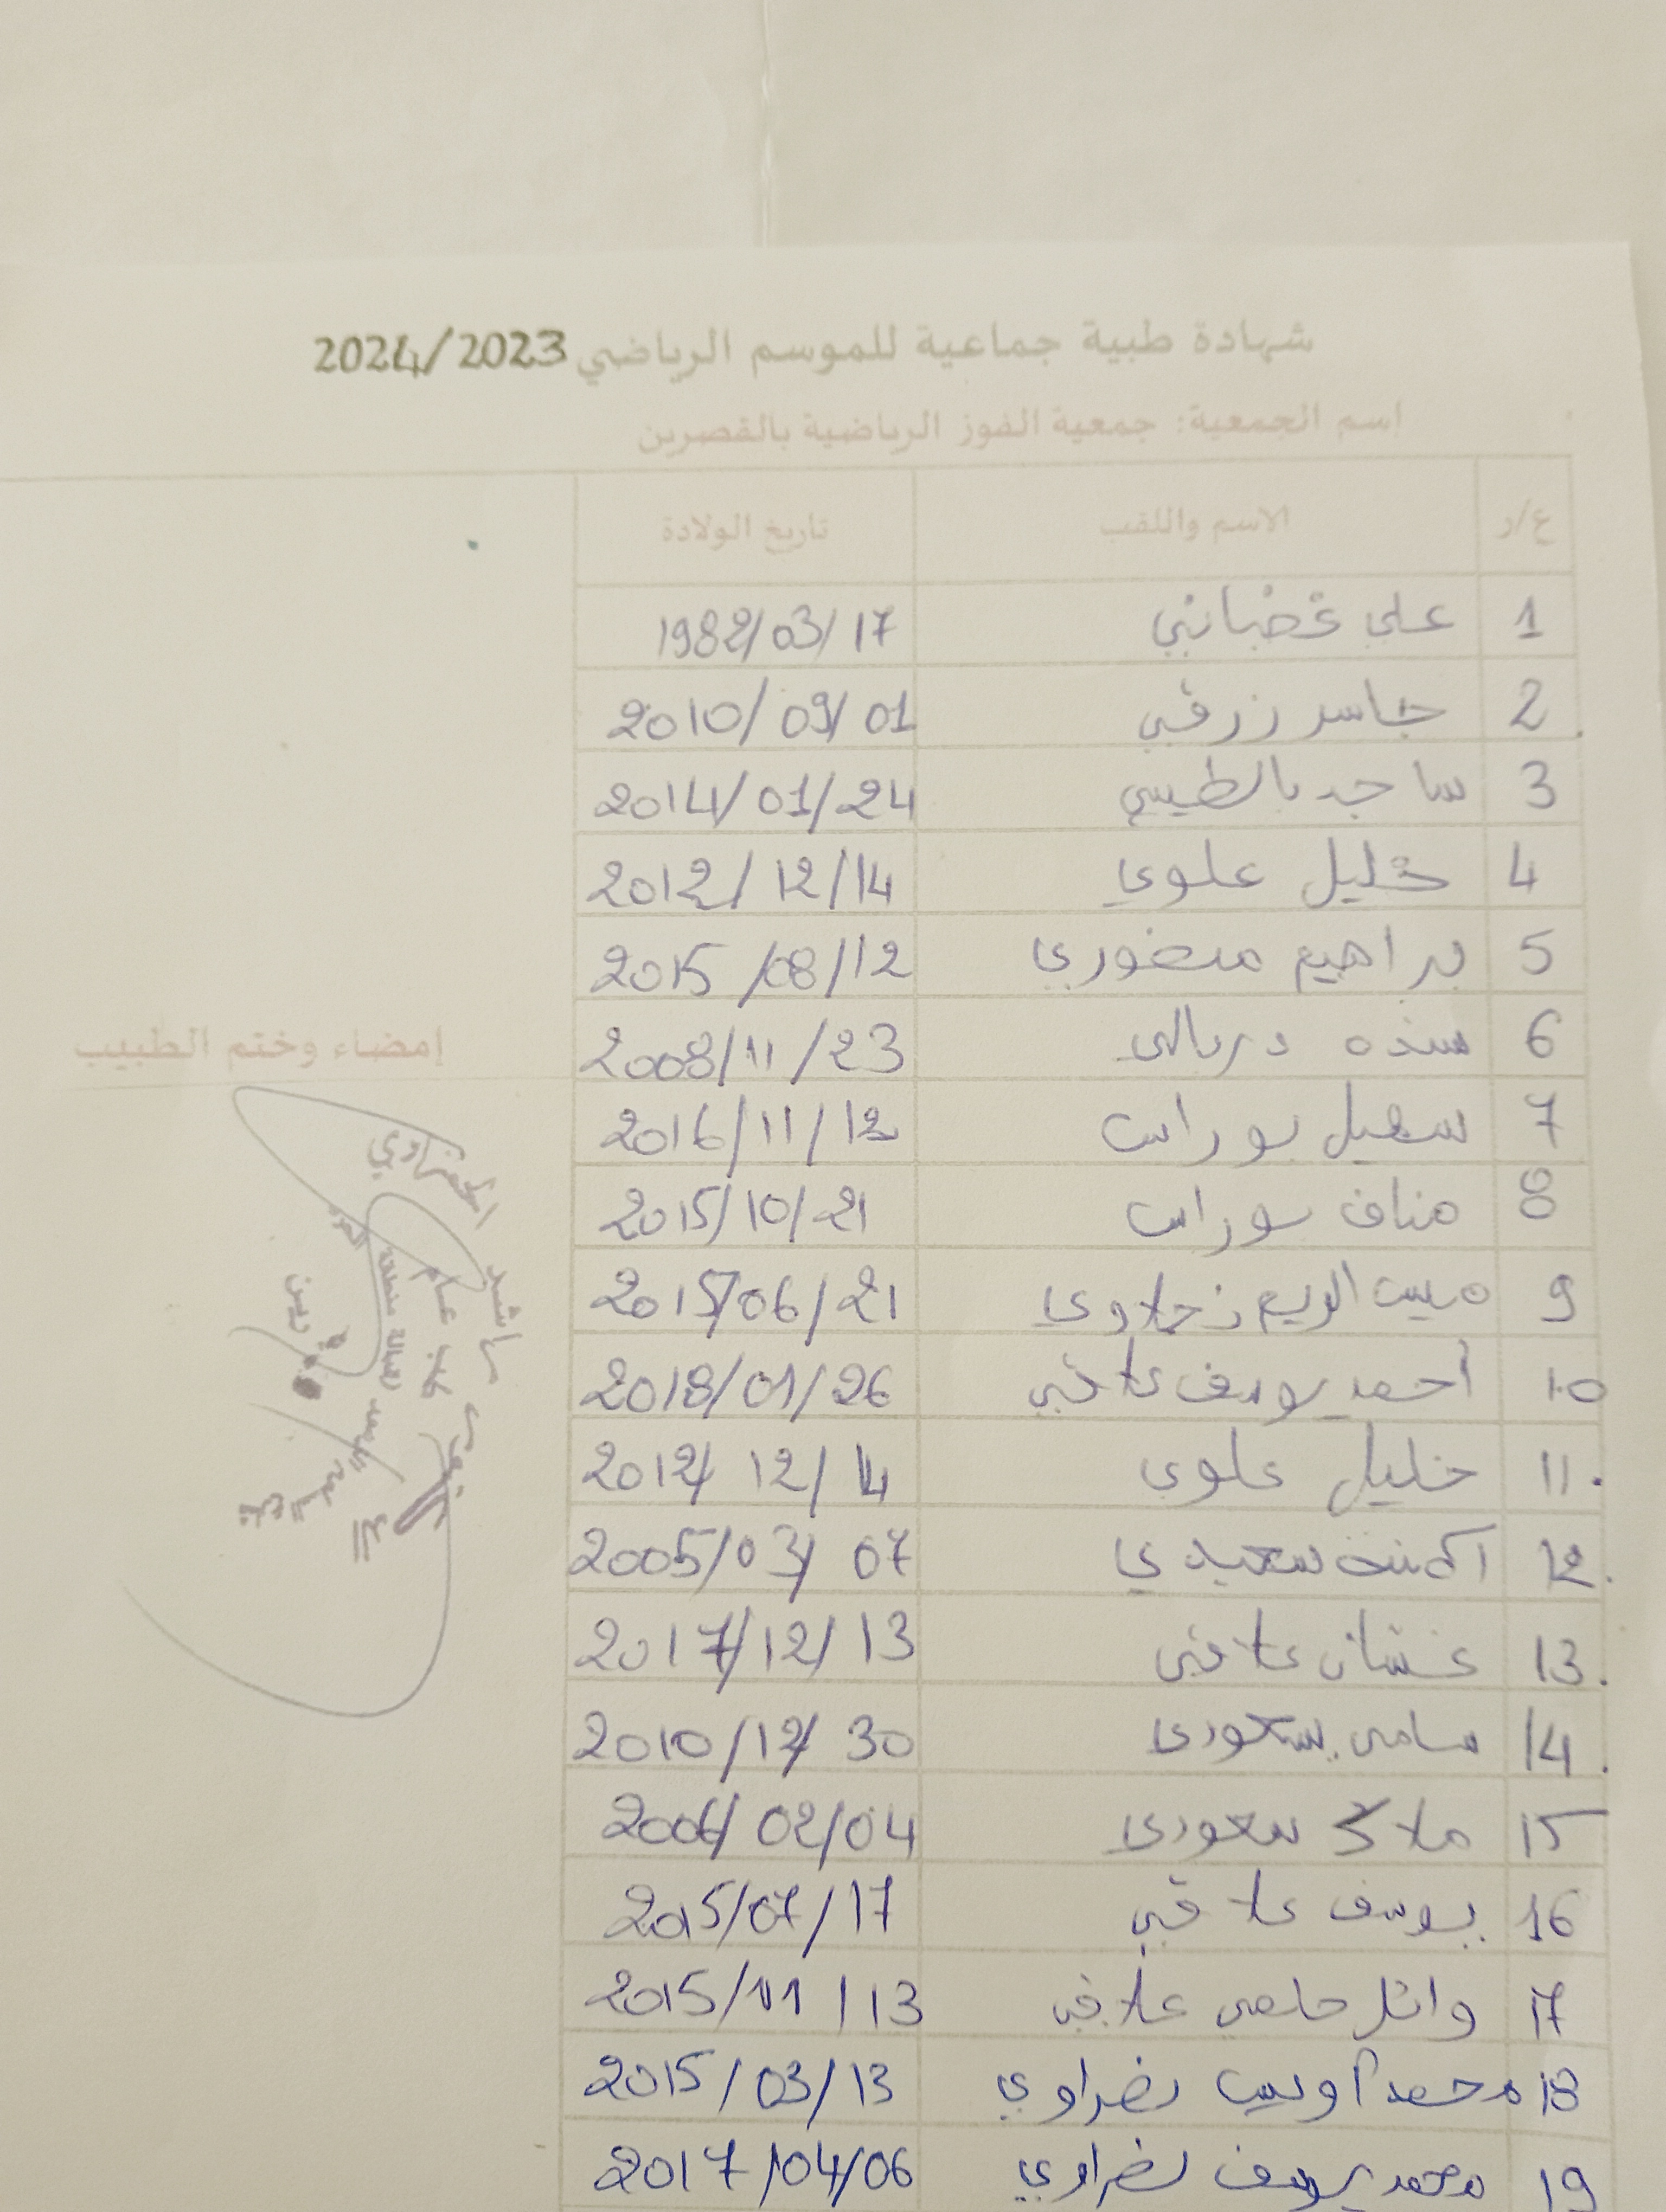 شهادة طبية جماعية للموسم الرياضي 2024/2023
اسم الجمعية: جمعية الفوز الرياضية بالقصرين
ع/ر الاسم واللقب تاريخ الولادة
1 علي غضباني 1982/03/17
2 جاسر زرقي 2010/09/01
3 ساجد بالطيبي 2014/01/24
4 خليل علوي 2012/12/14
5 براهيم منصوري 2015/08/12
6 2008/11/23
7 سهيل بوراس 2016/11/12
8 مناف بوراس 2015/10/21
9 2015/06/21
10 أحمد يوسف علاقي 2018/01/26
11 خليل علوي 2012/12/14
12 آمنة سعيدي 2005/03/07
13 غسان علاقي 2017/12/13
14 سامي سعودي 2010/12/30
15 ملاك سعودي 2006/02/04
16 يوسف علاقي 2015/07/17
17 وائل حلمي علاقي 2015/11/13
18 محمد أويس نصراوي 2015/03/13
19 محمد يوسف نصراوي 2017/04/06
إمضاء وختم الطبيب